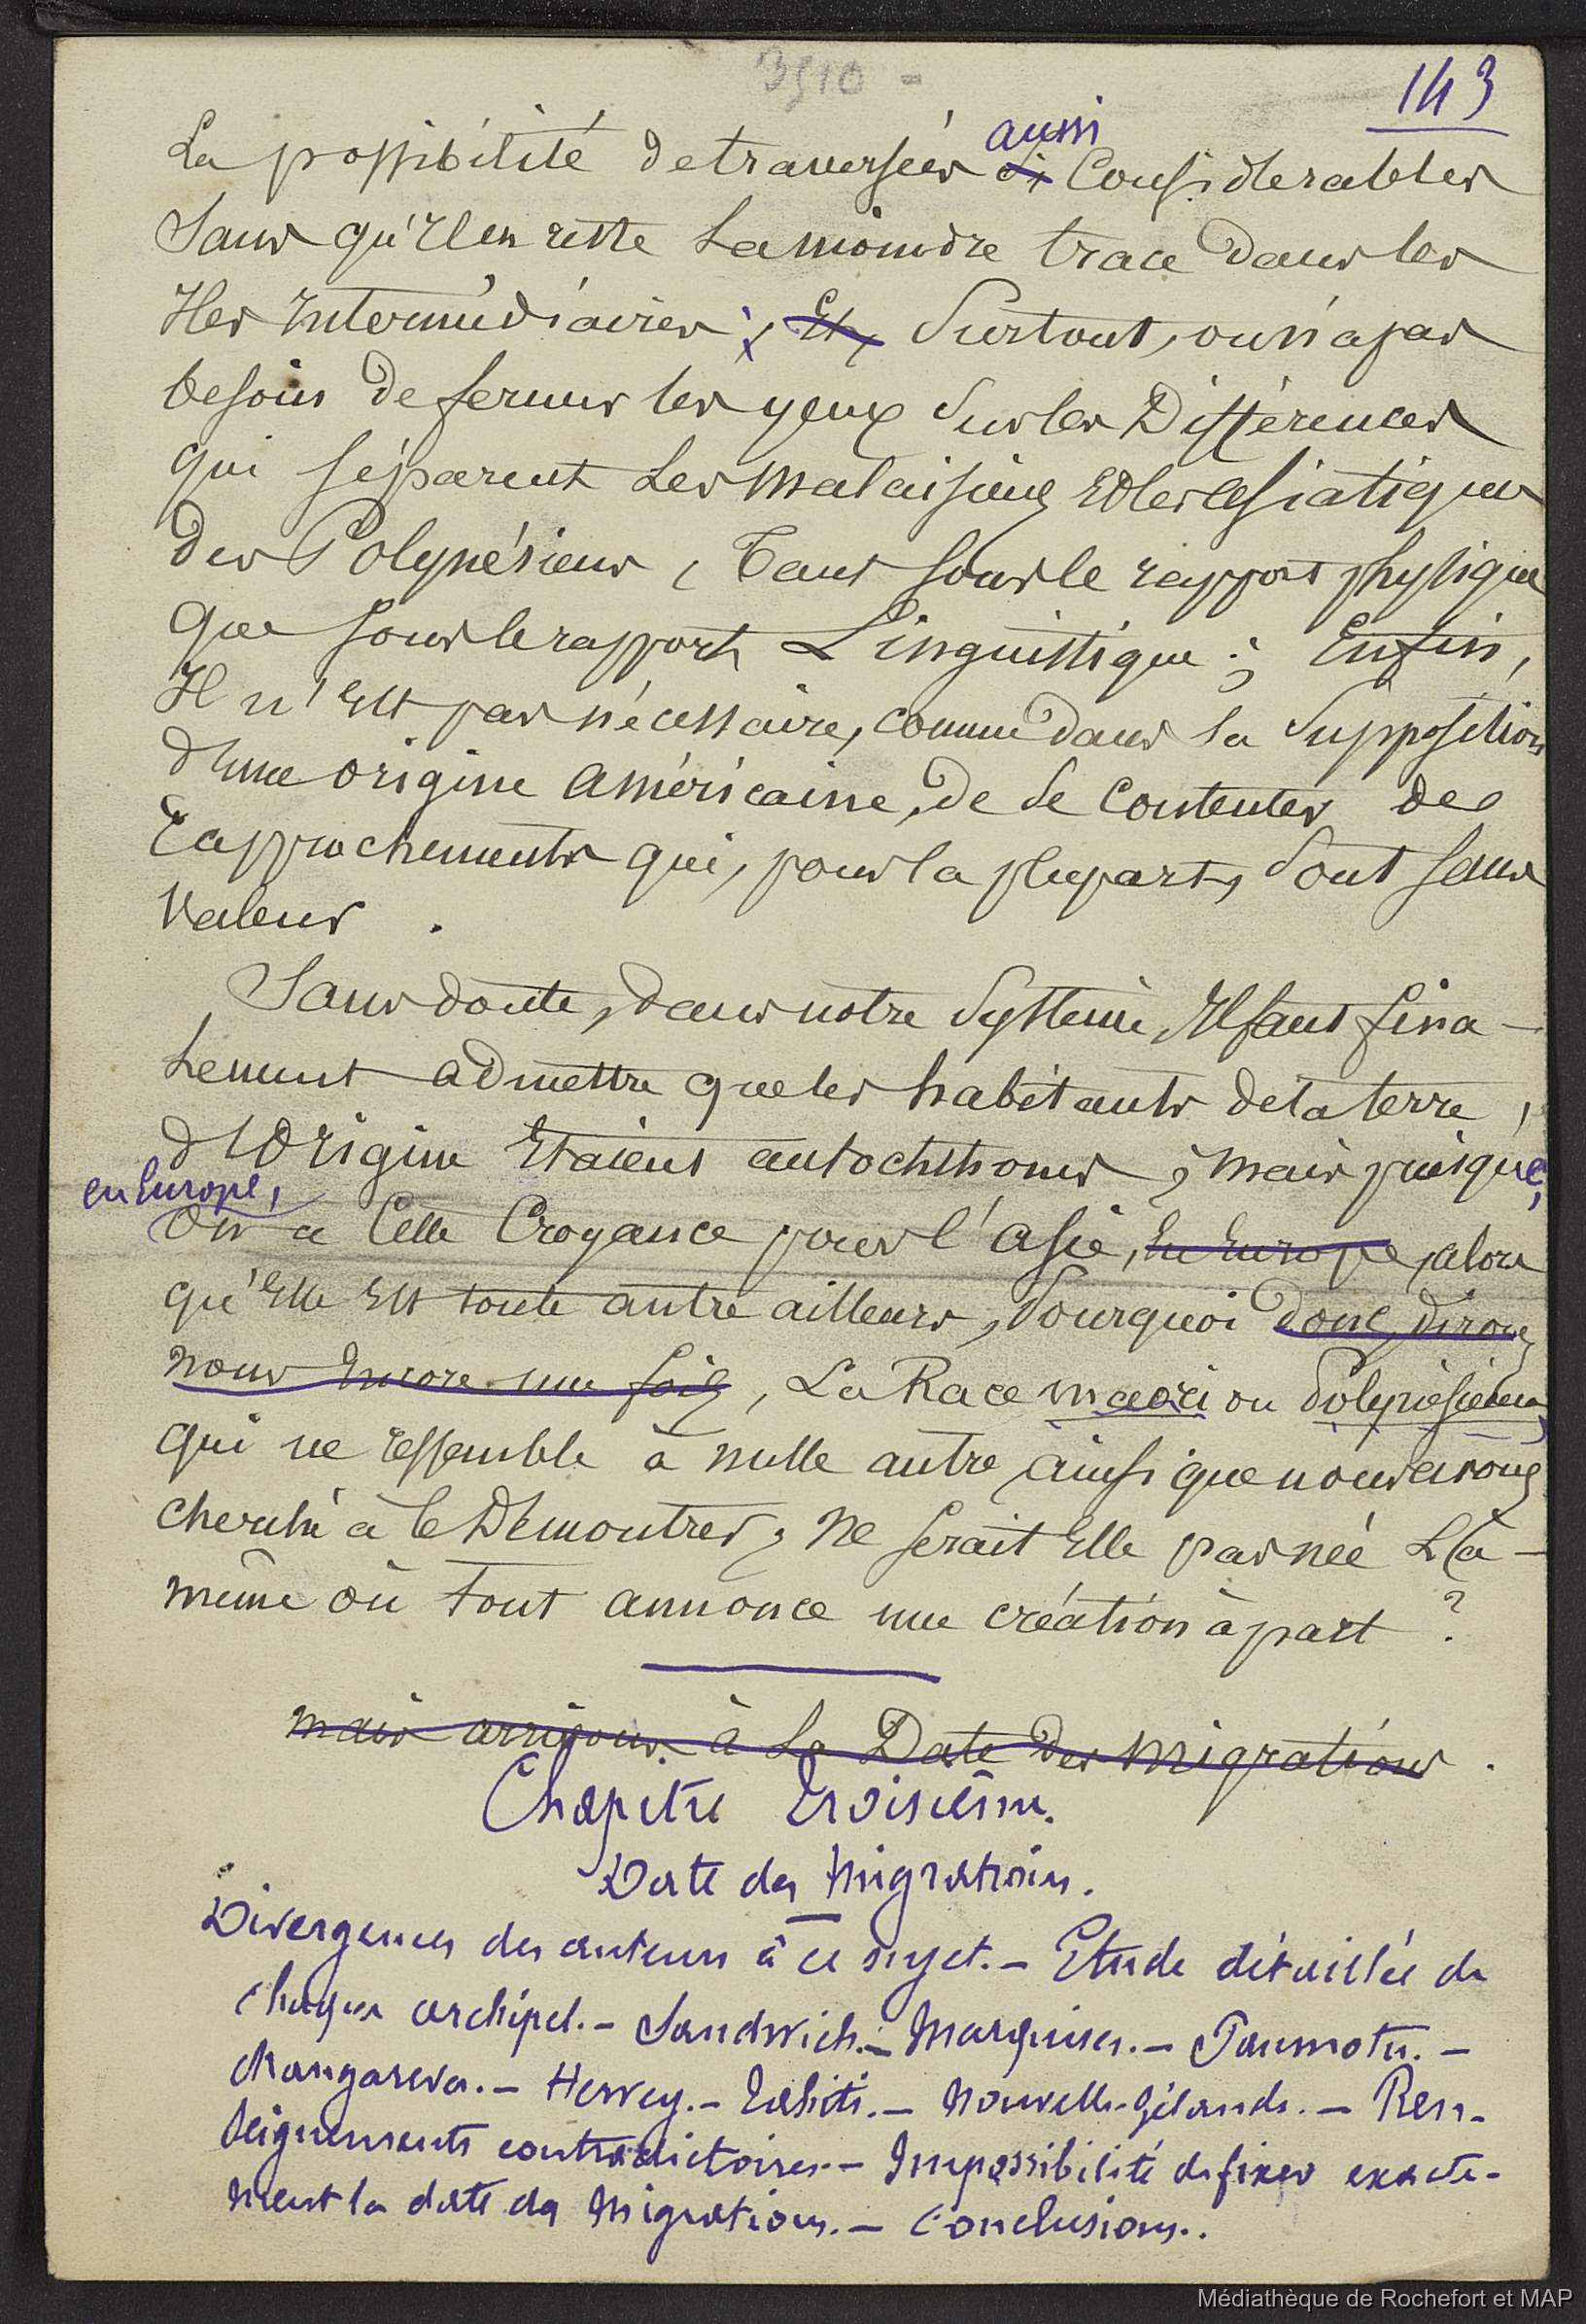 3510 -
143
La possibilité de traversées si aussi Considerables
Sans qu'Il en reste La moindre trace dans les
Iles Intermédiaires ; Et, Surtout, on n'a pas
besoin de fermer les yeux Sur les Différences
qui séparent Les malaisiens Et les asiatiques
Des Polynésiens, Tant sous le rapport physique
que sous le rapport Linguistique ; Enfin,
Il n'Est pas nécessaire, comme dans la Supposition
d'une origine américaine, de Se Contenter de
rapprochements qui, pour la plupart, Sont sans
valeur.
Sans doute, dans notre Système, Il faut fina-
lement admettre que les habitants de la terre
d'Origine Etaient autochthones ; mais puisque,
en Europe,
On a Cette Croyance pour l'asie, En Europe, alors
qu'Elle Est toute autre ailleurs, Pourquoi donc, dirons
nous Encore une fois, La Race maori ou Polynésienne,
qui ne ressemble à nulle autre ainsi que nous avons
cherché à le Démontrer, ne serait Elle pas née Là-
même où Tout annonce une création à part ?
mais arrivons à La Date Des migrations.
Chapitre Troisième.
Date des Migrations.
Divergences des auteurs à ce sujet. - Etude détaillée de
chaque archipel. - Sandwich. - Marquises. - Paumotu. -
Mangareva. - Hervey. - Tahiti. - Nouvelle-Zélande. - Ren-
seignements contradictoires. - Impossibilité de fixer exacte-
ment la date des Migrations. - Conclusions.
Médiathèque de Rochefort et MAP